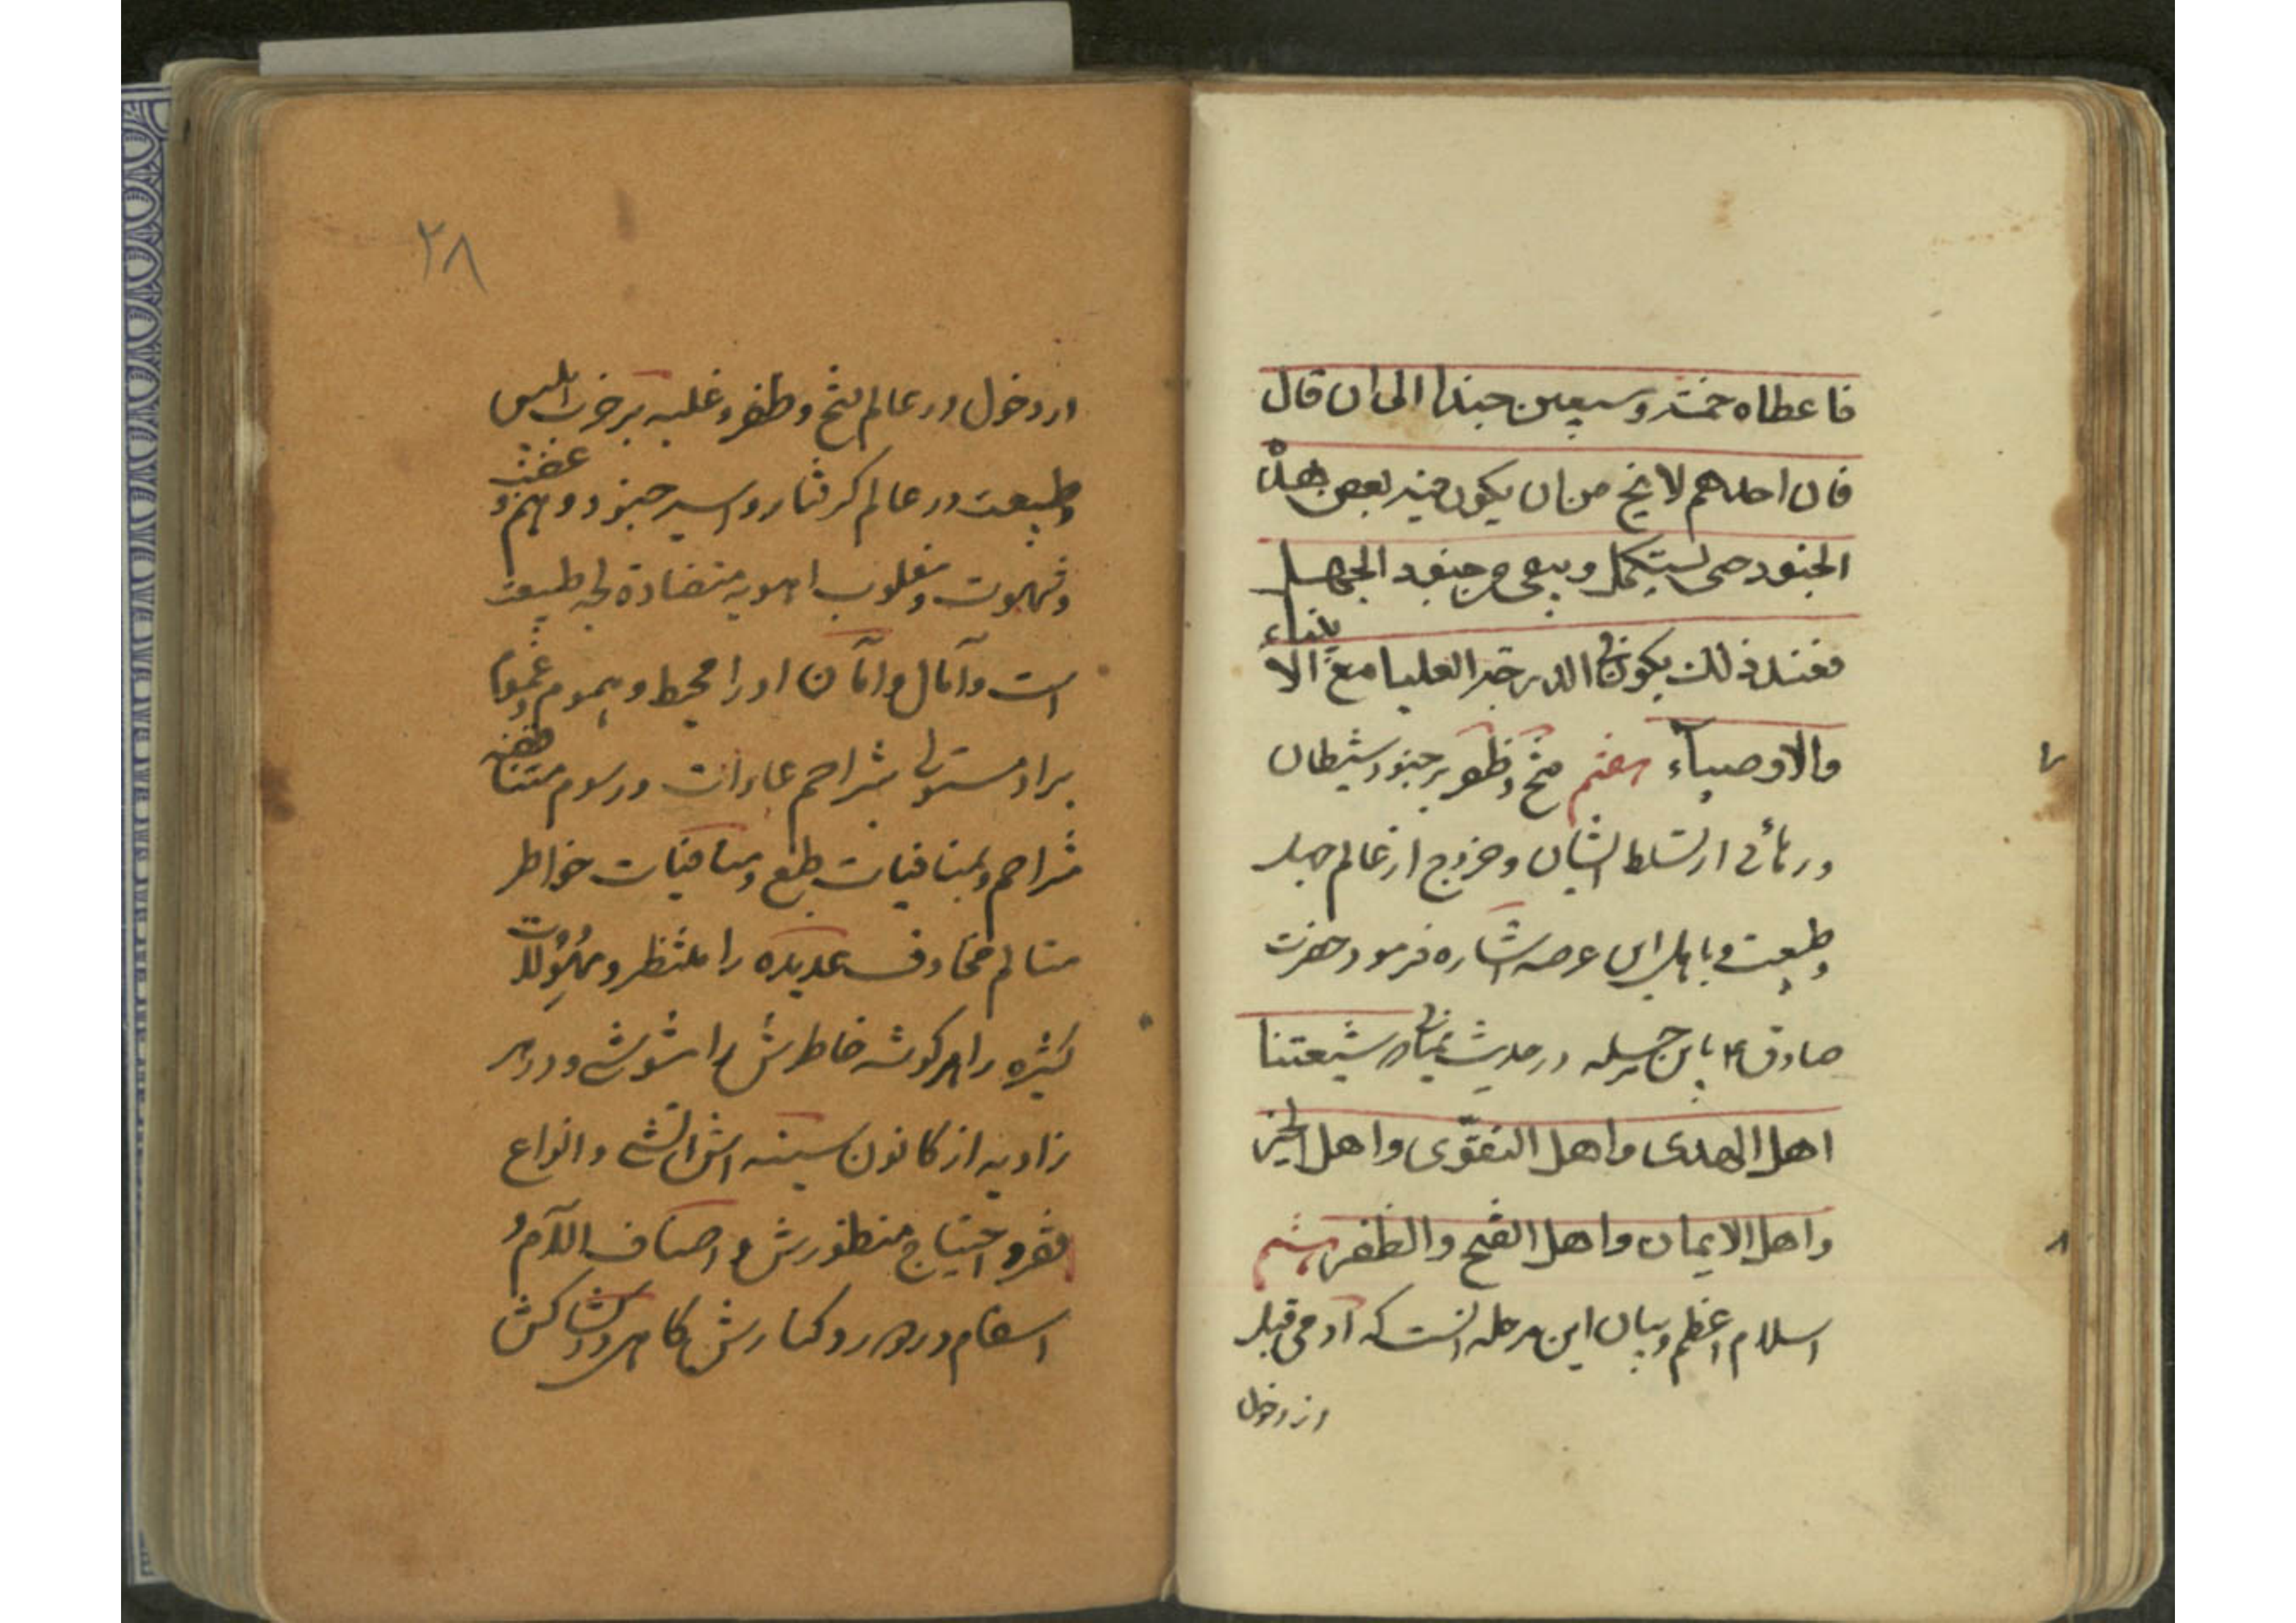 فاعطاه خمسة وسبعین جندا الی ان قال
فان احدهم لا یخ من ان یکون فیه بعض هذه
الجنود حتی یستکمل وینقی من جنود الجهل
فعند ذلک یکون فی الدرجة العلیا مع الانبیاء
والاوصیاء هفتم فتح وظفر بر جنود شیطان
۷
ورهائی از تسلط ایشان وخروج از عالم جهل
وطبیعت و باهل این عرصه اشاره فرمود حضرت
صادق ع در حدیث شیعتنا
اهل الهدی واهل التقوّی واهل الخیر
واهل الایمان واهل الفتح والظفر هشتم
۸
اسلام اعظم وبیان این مرحله آنست که آدمی قبل
از دخول
۲۸
از دخول در عالم فتح وظفر وغلبه بر حزب ابلیس
وطبیعت در عالم گرفتار واسیر جنود وهم و غضب
وشهوت ومغلوب اهویه متضادة لجه طبیعت
است وآمال وامان او را محیط وهموم وغموم
بر او مستولی بتزاحم عادات ورسوم متناقضه
متزاحم وبمنافیات طبع ومنافیات خواطر
متالم مخاوف عدیده را منتظر ومهولات
کثیره را هر گوشه خاطرش را مشوشی ودر هر
زاویه از کانون سینه اش آتشی وانواع
فقر و احتیاج منظورش و اصناف آلام و
اسقام در ودر کنارش گاهی در کشاکش